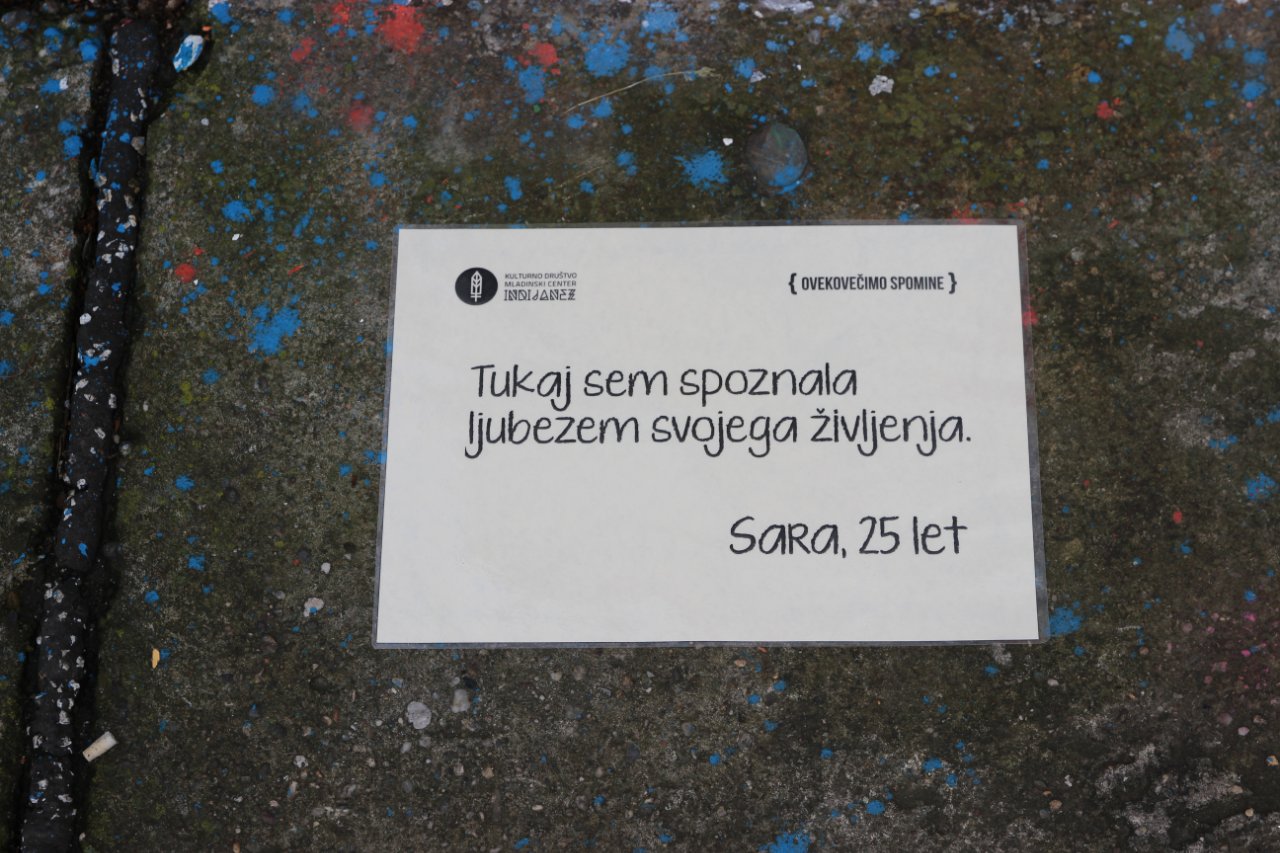 KULTURNO DRUŠTVO
MLADINSKI CENTER
INDIJANEZ
{ OVEKOVEČIMO SPOMINE }
Tukaj sem spoznala
ljubezem svojega življenja.
Sara, 25 let